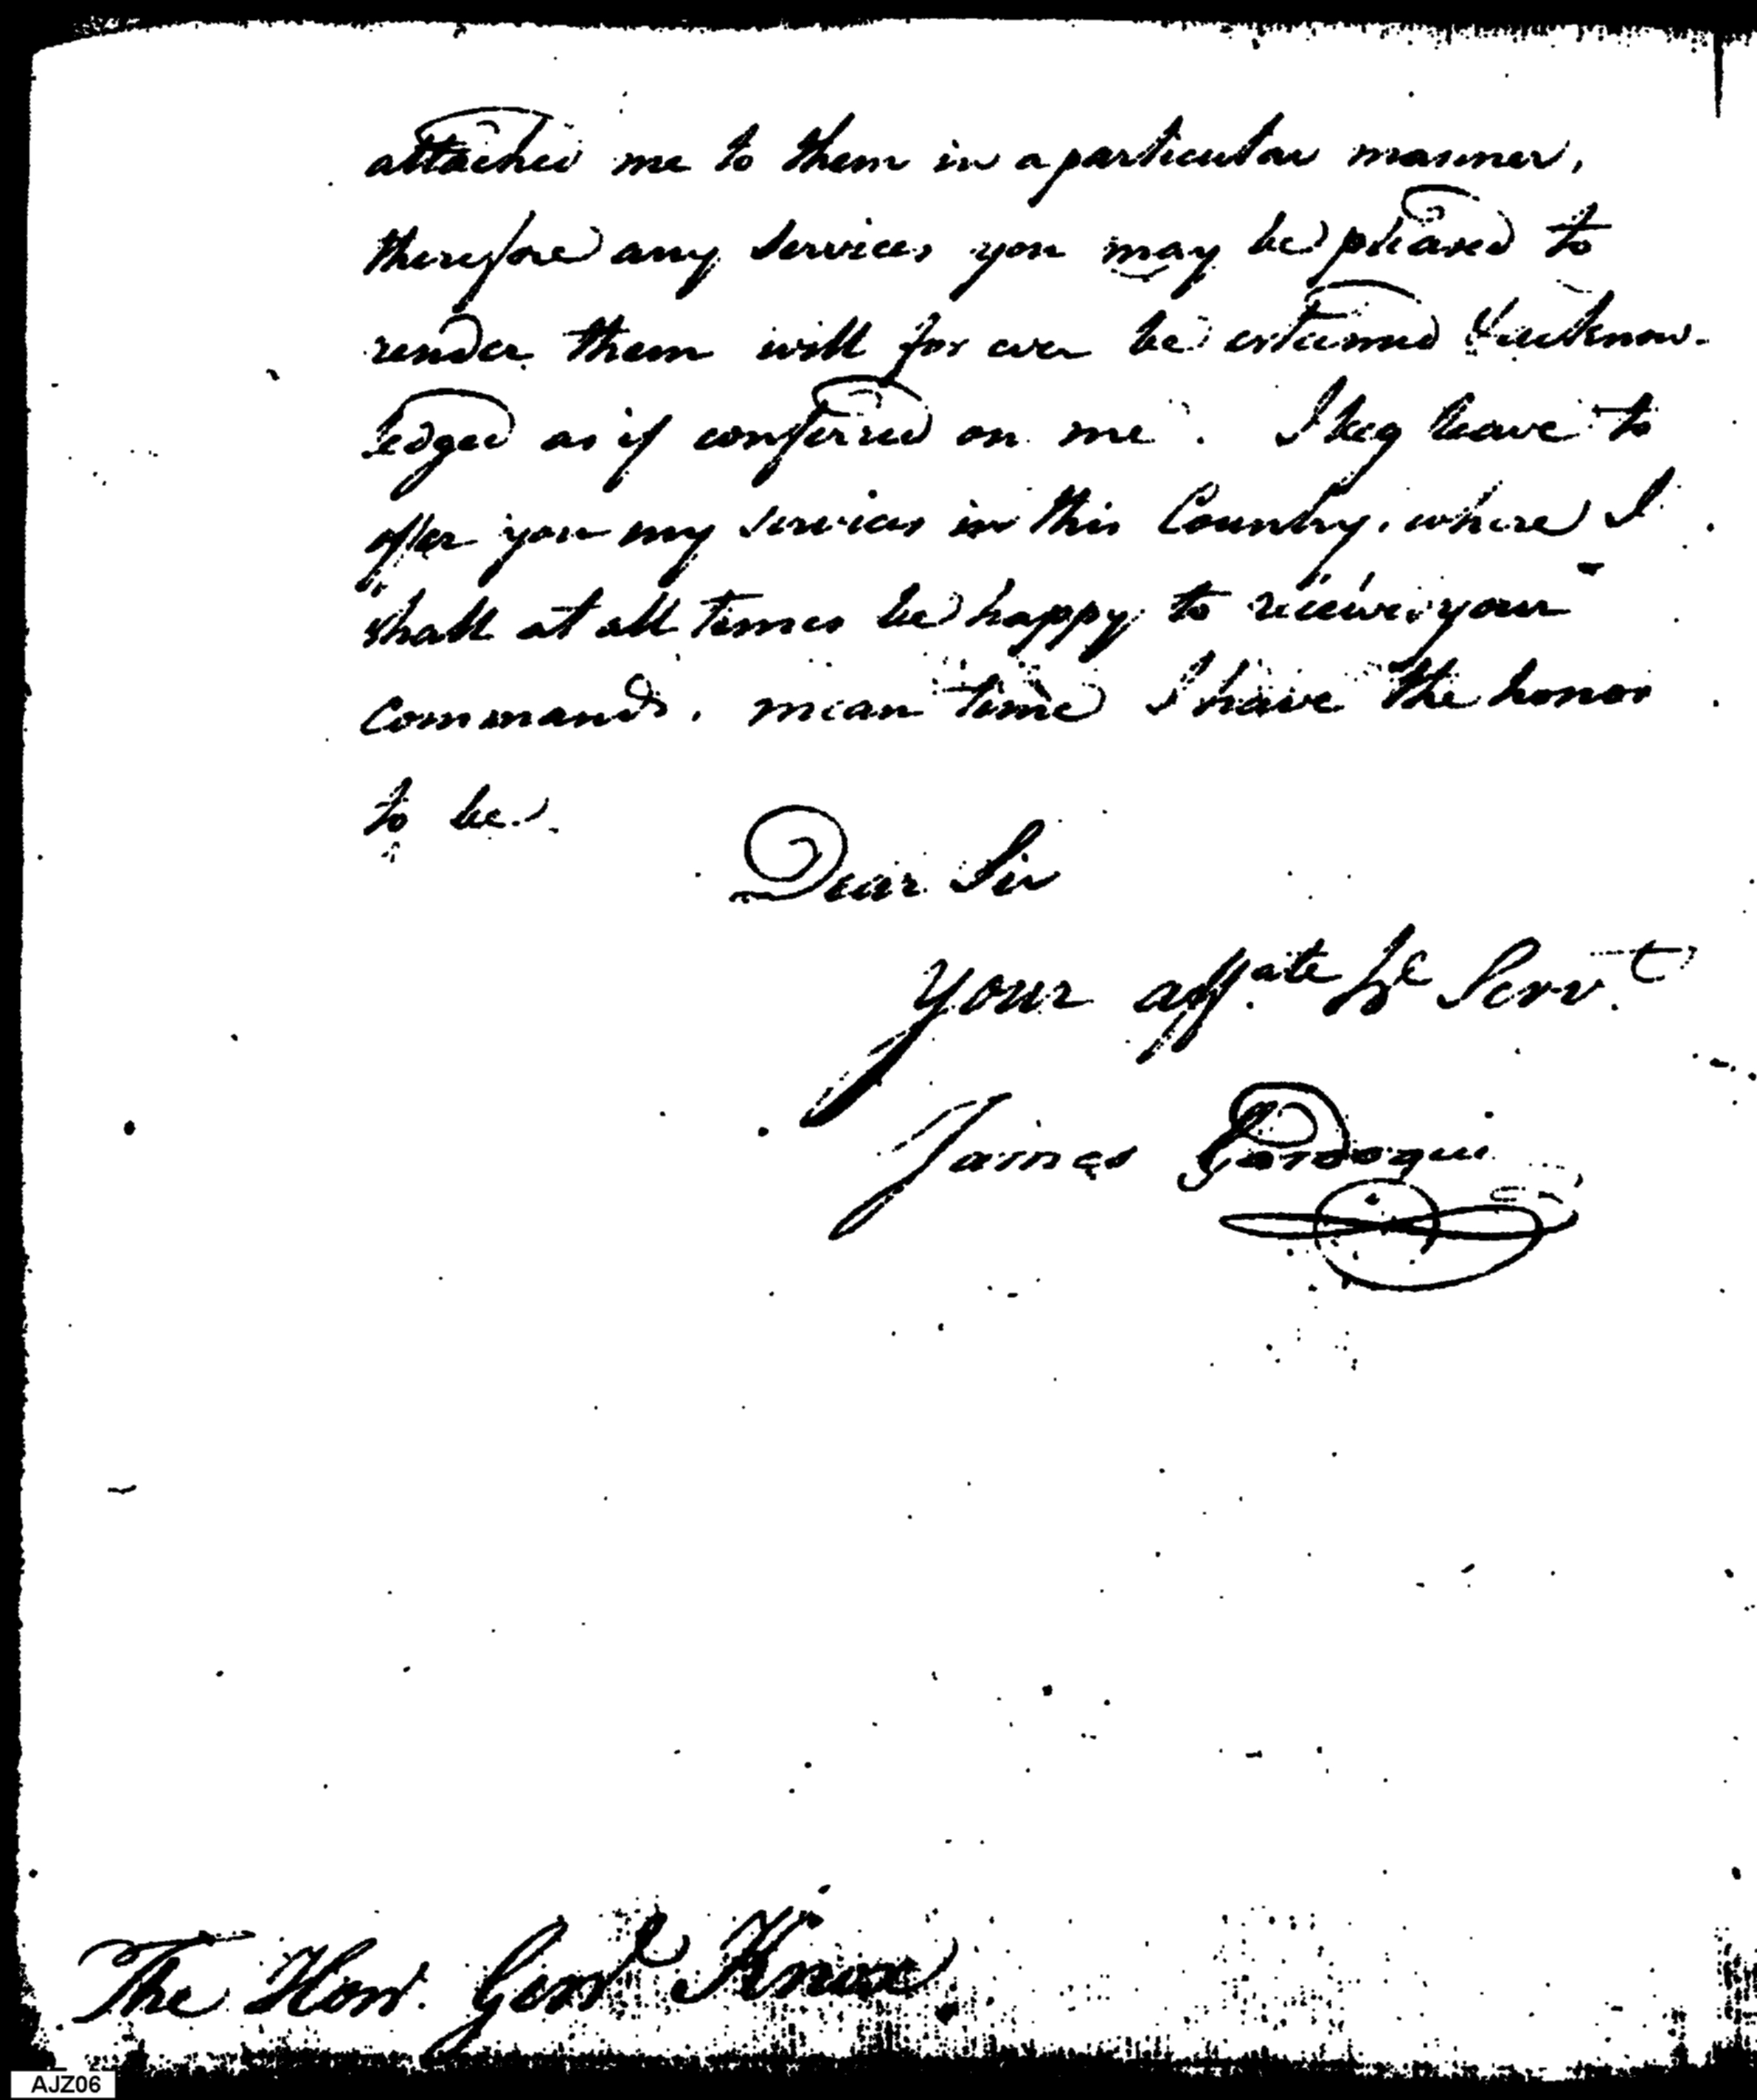 attached me to them in a particular manner,
therefore any services you may be pleased to
render them will for ever be esteemed & acknow-
ledged as if conferred on me. I beg leave to
offer you my services in this Country, where I
shall at all times be happy to receive your
commands, mean time I have the honor
to be
Dear Sir
your aff.ate Hle Serv.t
James Gardoqui
The Hon. Genl Knox
AJZ06